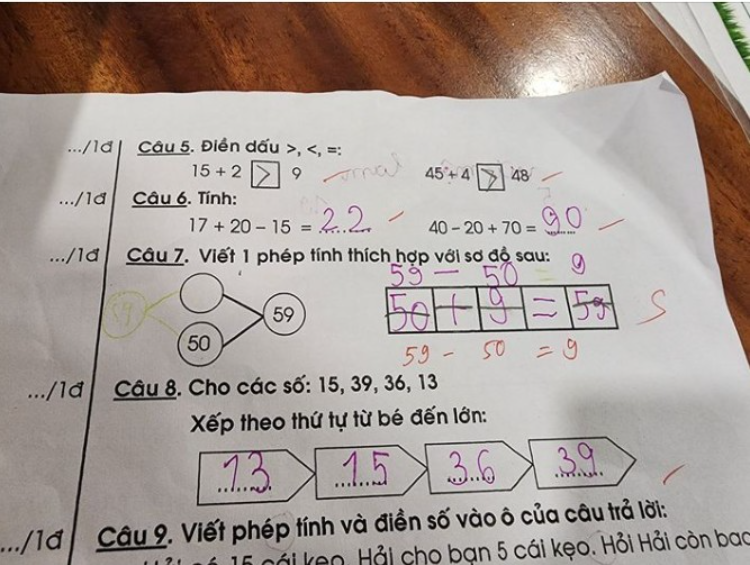 .../1đ Câu 5. Điền dấu >, <, =:
15 + 2 > 9 45 + 4 > 48
.../1đ Câu 6. Tính:
17 + 20 – 15 = 22 40 – 20 + 70 = 90
.../1đ Câu 7. Viết 1 phép tính thích hợp với sơ đồ sau:
59 – 50 = 9
59 59 50 + 9 = 59 S
50
59 – 50 = 9
.../1đ Câu 8. Cho các số: 15, 39, 36, 13
Xếp theo thứ tự từ bé đến lớn:
13 15 36 39
.../1đ Câu 9. Viết phép tính và điền số vào ô của câu trả lời:
có 15 cái kẹo. Hải cho bạn 5 cái kẹo. Hỏi Hải còn bao